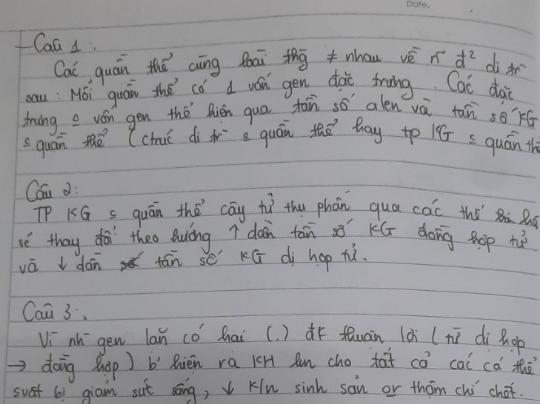 Date.
- Câu 1:
Các quần thể cùng loài thg ≠ nhau về n~ đ² di tr~
sau: Mỗi quần thể có 1 vốn gen đặc trưng. Các đặc
trưng vốn gen thể hiện qua tần số alen và tần số KG
quần thể (ctrúc di tr~ quần thể hay tp KG quần th
Câu 2:
TP KG quần thể cây tự thụ phấn qua các thế
sẽ thay đổi theo hướng ↑ dần tần số KG đồng hợp tử
và ↓ dần tần số KG dị hợp tử.
Câu 3:
Vì nh` gen lặn có hại (.) đk thuận lợi (từ dị hợp
→ đồng hợp) b' hiện ra KH làm cho tất cả các cá thể
suất bị giảm sức sống, ↓ K/n sinh sản or thậm chí chết.